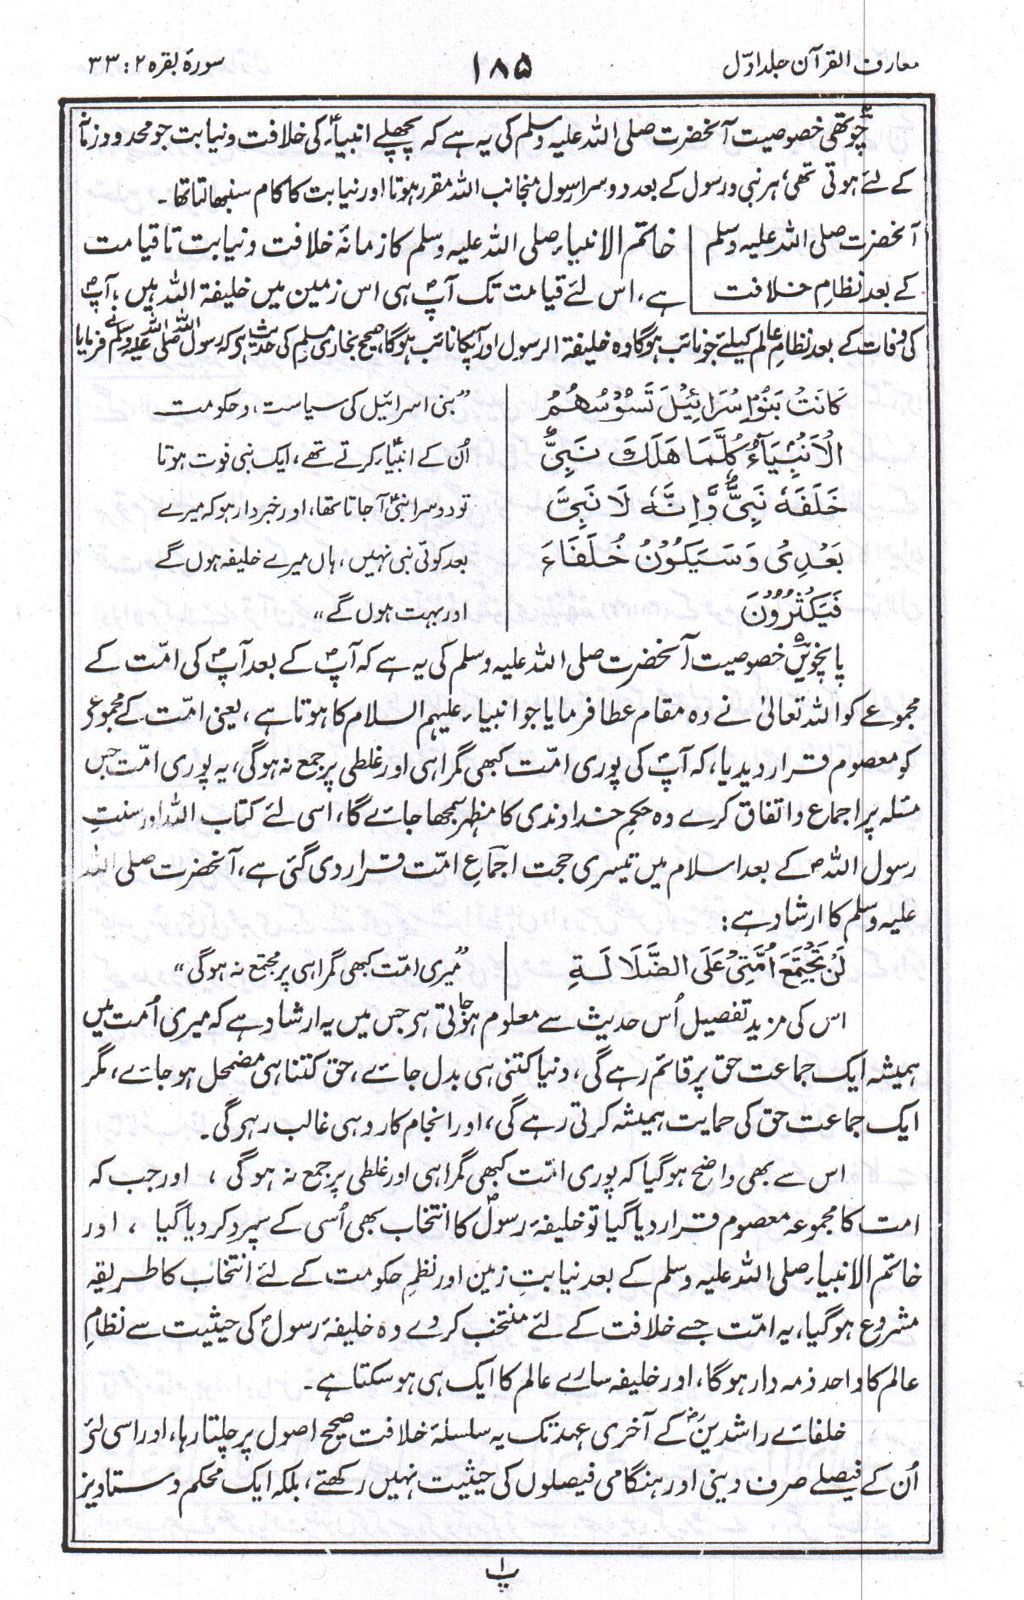 معارف القرآن جلد اوّل
۱۸۵
سورۂ بقرہ ۲ : ۳۳
چوتھی خصوصیت آنحضرت صلی اللہ علیہ وسلم کی یہ ہے کہ پچھلے انبیاءؑ کی خلافت و نیابت جو محدود زمانے
کے لئے ہوتی تھی، ہر نبی و رسول کے بعد دوسرا رسول منجانب اللہ مقرر ہوتا اور نیابت کا کام سنبھالتا تھا۔
آنحضرت صلی اللہ علیہ وسلم
کے بعد نظامِ خلافت
خاتم الانبیاء صلی اللہ علیہ وسلم کا زمانۂ خلافت و نیابت تا قیامت
ہے، اس لئے قیامت تک آپؐ ہی اس زمین میں خلیفۃ اللہ ہیں، آپؐ
کی وفات کے بعد نظامِ عالم کیلئے جو نائب ہوگا وہ خلیفۃ الرسول اور آپکا نائب ہوگا، صحیح بخاری و مسلم کی حدیث ہے کہ رسول اللہ صلی اللہ علیہ وسلم نے فرمایا
كَانَتْ بَنُوْا اِسْرَائِيْلَ تَسُوْسُهُمُ
الْاَنْبِيَآءُ كُلَّمَا هَلَكَ نَبِيٌّ
خَلَفَهٗ نَبِيٌّ وَّاِنَّهٗ لَا نَبِيَّ
بَعْدِيْ وَسَيَكُوْنُ خُلَفَاءَ
فَيَكْثُرُوْنَ
”بنی اسرائیل کی سیاست، و حکومت
اُن کے انبیاءؑ کرتے تھے، ایک نبی فوت ہوتا
تو دوسرا نبیؑ آجاتا تھا، اور خبردار ہو کہ میرے
بعد کوئی نبی نہیں، ہاں میرے خلیفہ ہوں گے
اور بہت ہوں گے“
پانچویں خصوصیت آنحضرت صلی اللہ علیہ وسلم کی یہ ہے کہ آپؐ کے بعد آپؐ کی امّت کے
مجموعے کو اللہ تعالیٰ نے وہ مقام عطا فرمایا جو انبیاء علیہم السلام کا ہوتا ہے، یعنی امّت کے مجموعے
کو معصوم قرار دیدیا، کہ آپؐ کی پوری امّت کبھی گمراہی اور غلطی پر جمع نہ ہوگی، یہ پوری امّت جس
مسئلہ پر اجماع و اتفاق کرے وہ حکمِ خداوندی کا مظہر سمجھا جائے گا، اسی لئے کتاب اللہ اور سنتِ
رسول اللہؐ کے بعد اسلام میں تیسری حجت اجماعِ امّت قرار دی گئی ہے، آنحضرت صلی اللہ
علیہ وسلم کا ارشاد ہے:
لَنْ تَجْتَمِعَ اُمَّتِيْ عَلَى الضَّلَالَةِ
”میری امّت کبھی گمراہی پر مجتمع نہ ہوگی“
اس کی مزید تفصیل اُس حدیث سے معلوم ہوجاتی ہے جس میں یہ ارشاد ہے کہ میری اُمّت میں
ہمیشہ ایک جماعت حق پر قائم رہے گی، دنیا کتنی ہی بدل جائے، حق کتنا ہی مضمحل ہوجائے، مگر
ایک جماعت حق کی حمایت ہمیشہ کرتی رہے گی، اور انجام کار وہی غالب رہے گی۔
اس سے بھی واضح ہوگیا کہ پوری امّت کبھی گمراہی اور غلطی پر جمع نہ ہوگی، اور جب کہ
امت کا مجموعہ معصوم قرار دیا گیا تو خلیفۂ رسولؐ کا انتخاب بھی اُسی کے سپرد کردیا گیا، اور
خاتم الانبیاء صلی اللہ علیہ وسلم کے بعد نیابتِ زمین اور نظمِ حکومت کے لئے انتخاب کا طریقہ
مشروع ہوگیا، یہ امّت جسے خلافت کے لئے منتخب کردے وہ خلیفۂ رسولؐ کی حیثیت سے نظامِ
عالم کا واحد ذمہ دار ہوگا، اور خلیفہ سارے عالم کا ایک ہی ہوسکتا ہے۔
خلفائے راشدینؓ کے آخری عہد تک یہ سلسلۂ خلافت صحیح اصول پر چلتا رہا، اور اسی لئے
اُن کے فیصلے صرف دینی اور ہنگامی فیصلوں کی حیثیت نہیں رکھتے، بلکہ ایک محکم دستاویز
پ ۱